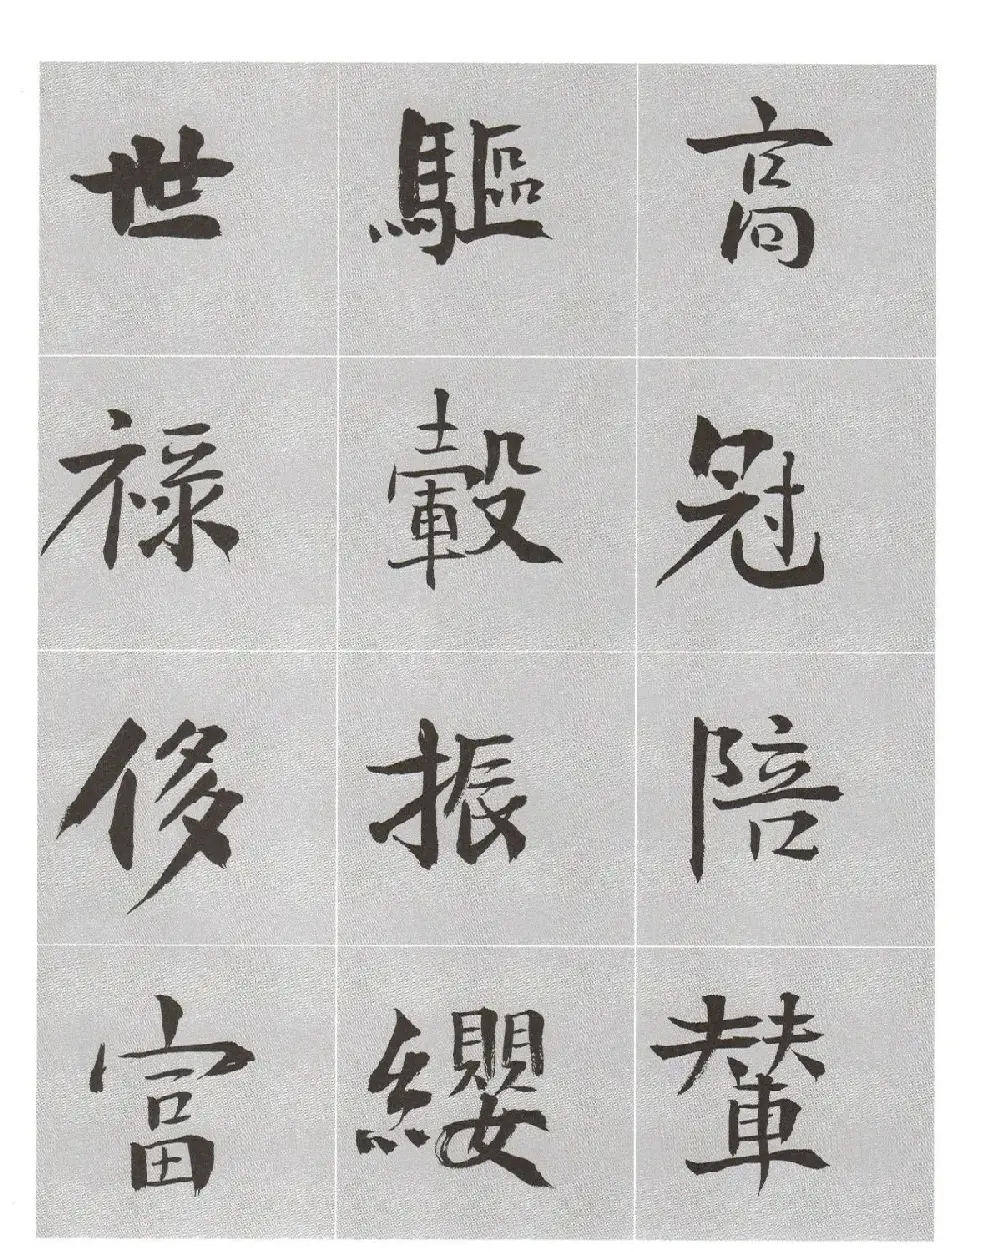 高冠陪輦
驅轂振纓
世祿侈富